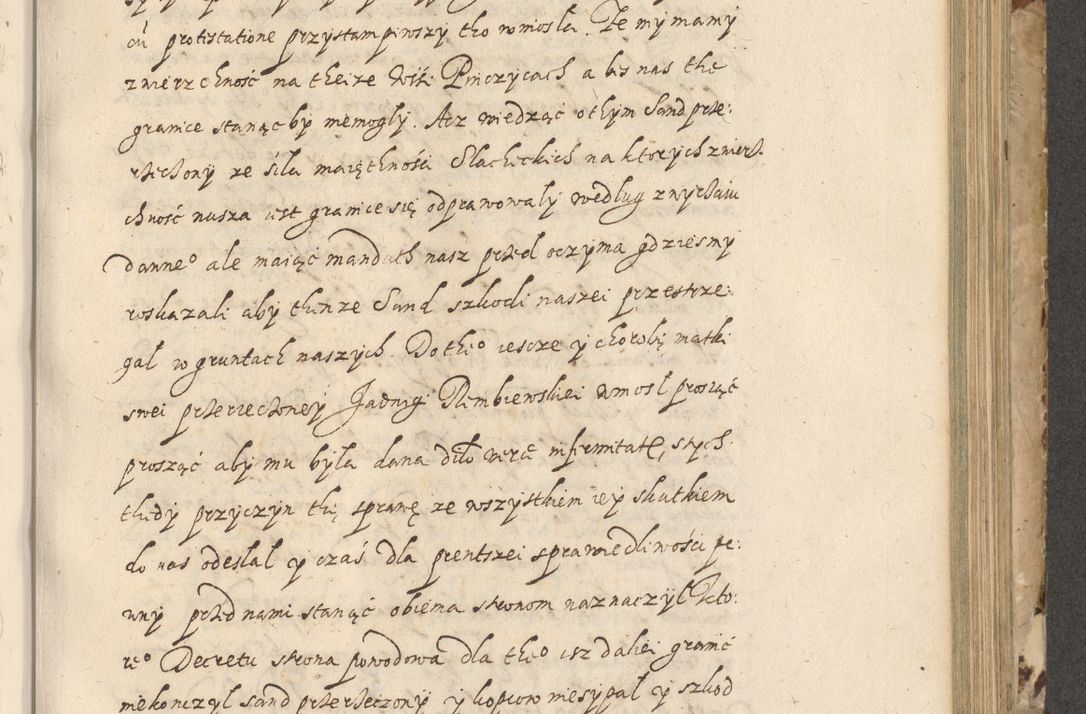 cú protistatione przystampiwszy tho wniosla. Že my mamy
zwierzchność na theize Wśi Pinczycach a bes nas the
granice stanącby niemogly. Acz wiedząc othym Sand prze:
rzeczony ze siła maiętności Slacheckich na ktorych zwierz.
chność nasza iest granice się odprawowaly według zwyczaiu
danneº ale maiąc mandath nasz przed oczyma gdziesmy
roskazali aby thenze Sand szkodi naszei przestrze:
gal w gruntach naszych. Do theº iescze y chorobę matki
swei przerzeczoney Jadwigi Rembiewskiei wniosl prosząc
prosząc aby mu byla dana dilo verae infirmitatis, s tych
thedy przyczyn thę sprawę ze wszystkiem iey skutkiem
do nas odeslal y czas dla prentszei sprawiedliwości pe:
wny przed nami stanąć obiema stronom naznaczyl Kto:
reº Decretu strona powodowa dla theº isz daliei granic
niekonczyl sand przerzeczony y kopcow niesypal y szkod